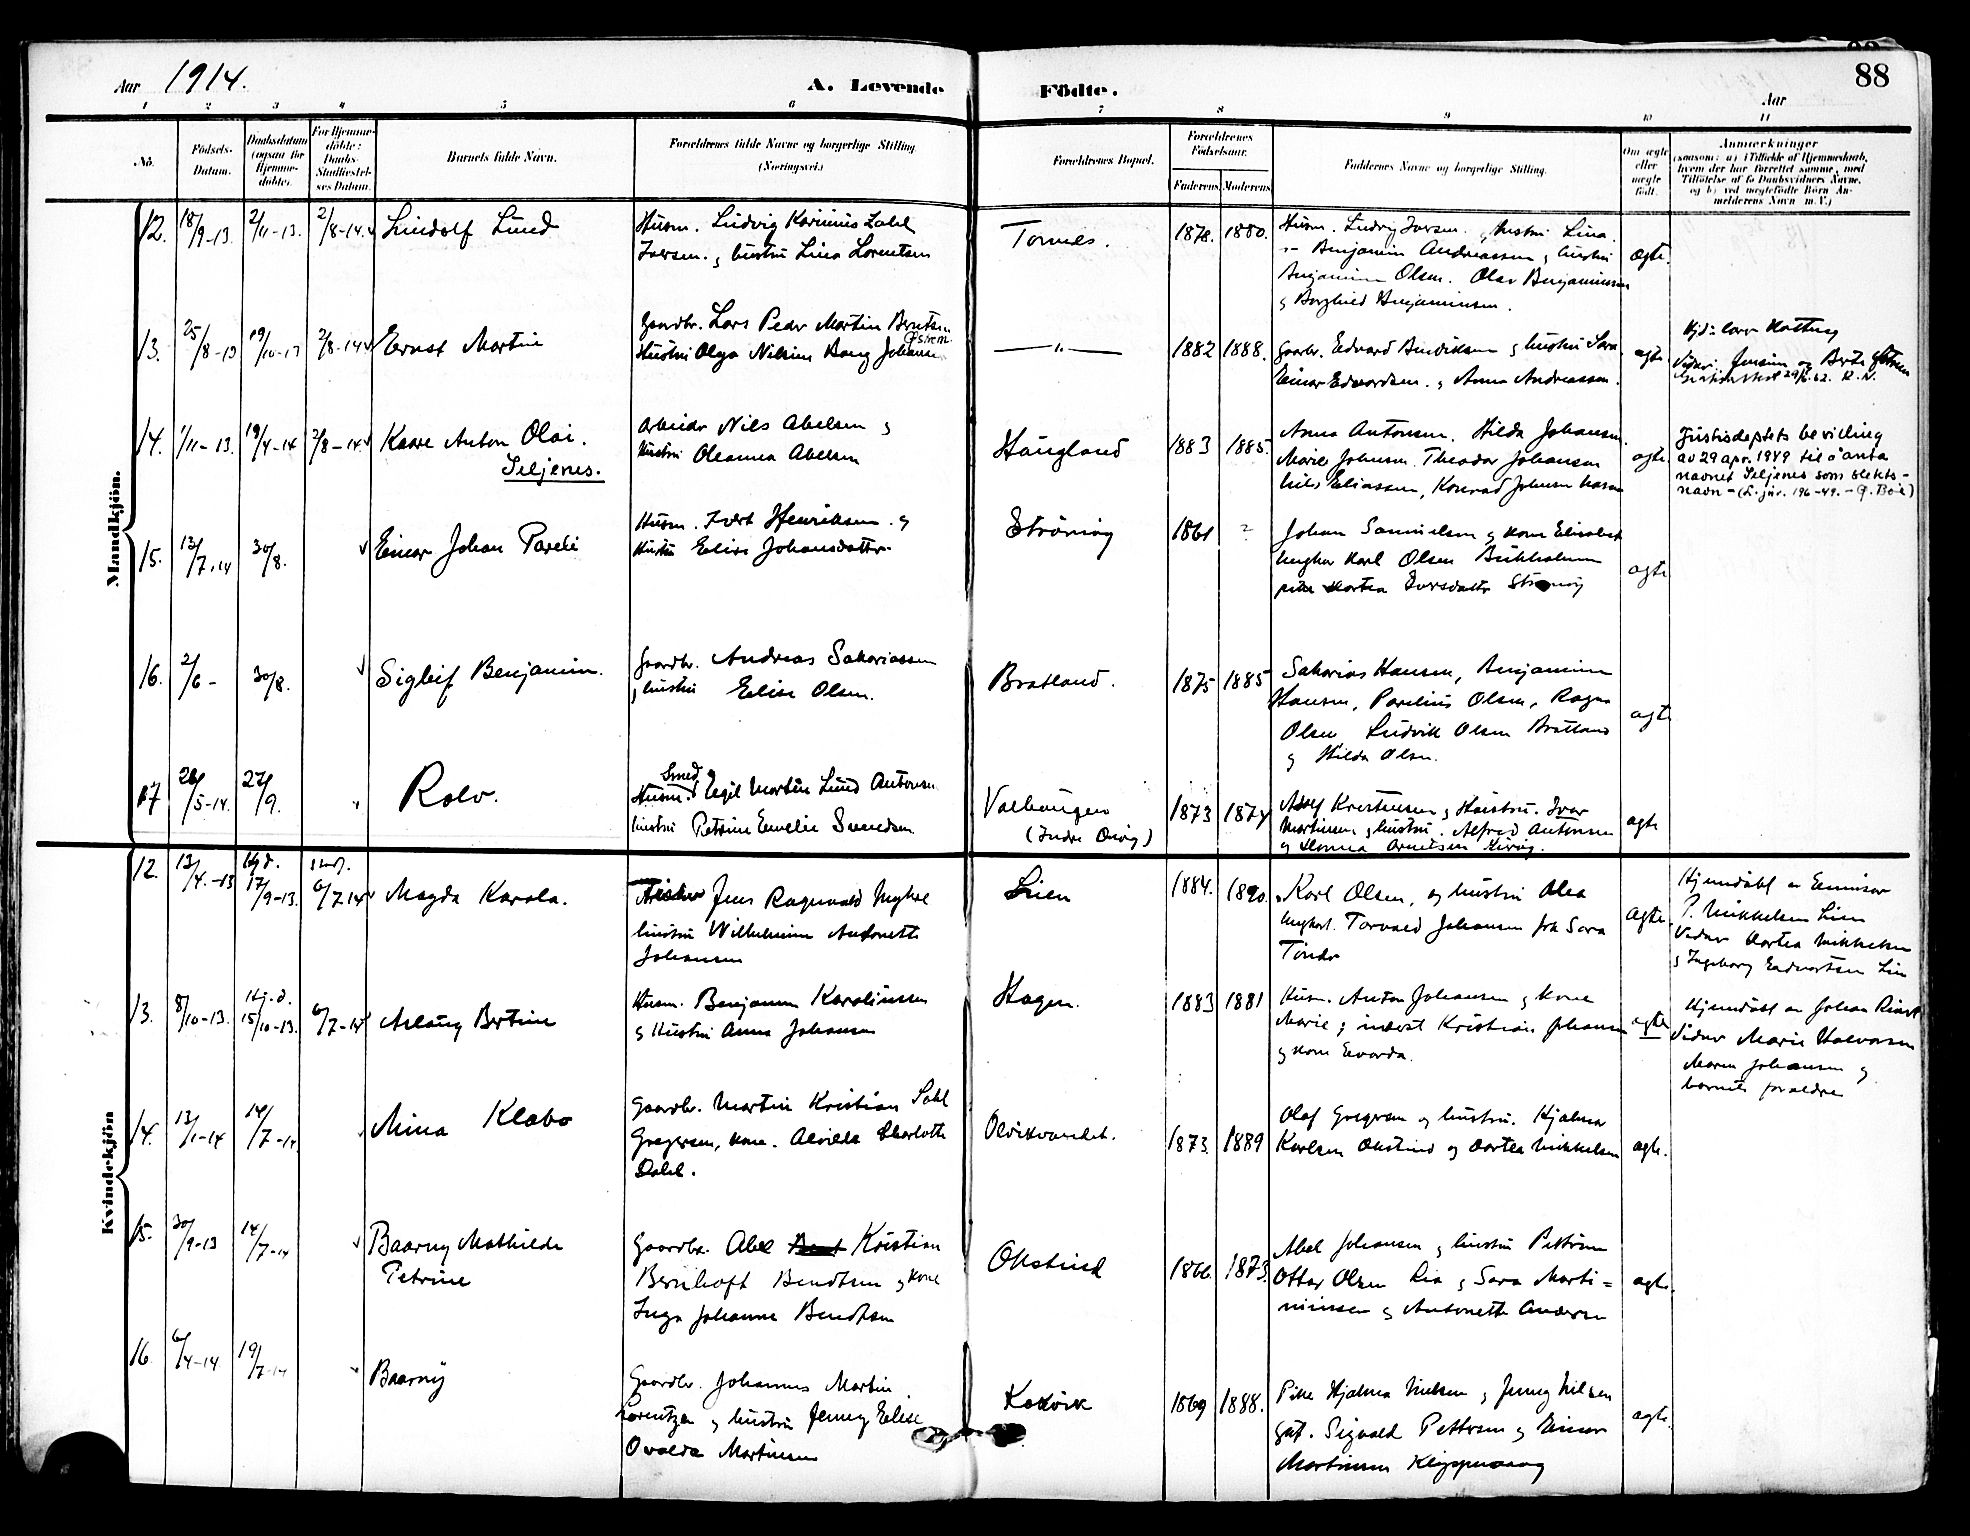 88
Aar 1914. A. Levende Födte. Aar
1 2 3 4 5 6 7 8 9 10 11
No. Födsels-Datum. Daabsdatum (ogsaa for Hjemmedöbte). For Hjemmedöbte: Daabs-Stadfæstelses Datum. Barnets fulde Navn. Forældrenes fulde Navne og borgerlige Stilling (Næringsvei.) Forældrenes Bopæl. Forældrenes Födselsaar. Faderens Moderens Faddernes Navne og borgerlige Stilling. Om ægte eller uægte födt. Anmærkninger
(saasom: a) i Tilfælde af Hjemmedaab, hvem der har forrettet samme, med Tilföielse af to Daabsvidners Navne, og b) ved uægtefödte Börn Anmelderens Navn m. V.)
Mandkjön.
12. 18/9-13. 2/11-13. 2/8-14. Lindolf Lund
Husm. Ludvig Karinius Zahl
Iversen. og hustru Lina Lorentsen
Tonnes. 1878. 1880.
Husm. Ludvig Iversen. og hustru Lina.
Benjamin Andreassen og hustru
Benjamine Olsen. Olav Benjaminsen
og Borghild Benjaminsen.
ægte.
13. 25/8-13 19/10-13 2/8-14 Ernst Martin
Gaardbr. Lars Peder Martin Berntsen
Hustru Olga Nilsine Bang Johansen
— " — 1882 1888.
Gaardbr. Edvard Bendiksen og hustru Sara
Einar Edvardsen. og Anna Andreassen.
ægte
14. 1/11-13. 19/4-14 2/8-14 Kaare Anton Olai.
Seljenes.
Arbeider Nils Abelsen og
Hustru Oleanna Abelsen
Haugland 1883 1885.
Anna Antonsen. Hilda Johansen.
Marie Johnsen. Theodor Johansen
Nils Eliassen, Konrad Johnsen
ægte.
Justisdeptets bevilling
av 29 apr. 1949 til å anta
navnet Seljenes som slekts-
navn - (L. jnr. 196-49. - G. Boe)
15. 13/7-14 30/8. Einar Johan Pareli
Husm. Ivert Henriksen. og
Hustru Elise Johansdatter
Strömöy 1861 ?
Johan Samuelsen og kone Elisabet
Ungkar Karl Olsen Bukholmen
pike Hartea Iversdatter Strömöy
ægte
16. 2/6- 30/8. Sigleif Benjamin.
Gaardbr. Andreas Sakariassen
og hustru Elise Olsen.
Bratland. 1875 1885
Sakarias Hansen, Benjamine
Hansen, Parelius Olsen, Ragna
Olsen Ludvik Olsen Bratland
og Hilda Olsen.
ægte
17 26/5-14. 27/9. Rolv.
Smed
Husm. Eegil Martin Lund Antonsen
hustru Petrine Emelie Svendsen
Valhaugen
(Indre Qvig) 1873 1874
Adolf Kristensen og Hustru. Ivar
Martinsen og hustru. Alfred Antonsen
og Hanna Arentsen
ægte
Kvindekjön
12. 13/4.-13 Hj.d. 17/9-13. 6/7-14 Magda Karola.
Fisker Jens Ragnvald Mykle
hustru Wilhelmine Antonette
Johansen
Lien 1884. 1890.
Karl Olsen, og hustru Olea
Ungkarl. Torvald Johansen frk Sara
Tönder
ægte
Hjemdöbt av Enminsar
P. Mikkelsen Lien
Vidner Dortea Mikkelsen
og Ingeborg Edvartsen Lien
13. 8/10-13. Hj.d. 15/10-13. 6/7-14 Aslaug Bertine
Husm. Benjamin Karolinssen
og Hustru Anna Johansen
Hagen. 1883 1881
Husm. Anton Johansen og kone
Marie og inderst Kristian Johansen
og kone Evarda.
ægte
Hjemdöbt av Johan
Vidner Marie Halvorsen
Maren Johansen og
barnets foraldre
14. 13/1-14 14/7-14. Mina Klebo
Gaardbr. Martin Kristian Dahl
Gregersen, kone. Alvilde Charlotte
Dahl.
Olvikvandet. 1873. 1889
Olaf Gregersen og hustru. Hjalmar
Karlsen Okstind og Dortea Mikkelsen
ægte.
15. 30/9-13 14/7-14 Baarny Mathilde
Petrine
Gaardbr. Abel Kristian
Bernhoft Bendtsen og kone
Inga Johanne Bendtsen
Okstind 1866 1873.
Abel Johansen og hustru Petrine
Ottar Olsen Lia og Sara Marti=
ninssen og Antonette Andersen
ægte.
16. 6/4-14 19/7-14 Baarny
Gaardbr. Johannes Martin
Lorentzen og hustru Jenny Elise
Ovalda Martinsen
Kokvik 1869 1888.
Pike Hjalma Nielsen og Jenny Nilsen
Gift. Sigvald Pettersen og Einar
Martinsen
ægte.